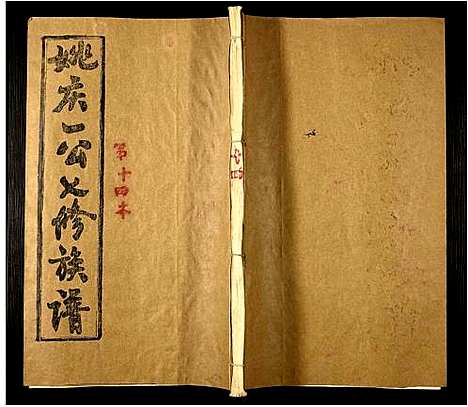 姚庆一公七修族谱
第十四本
十四